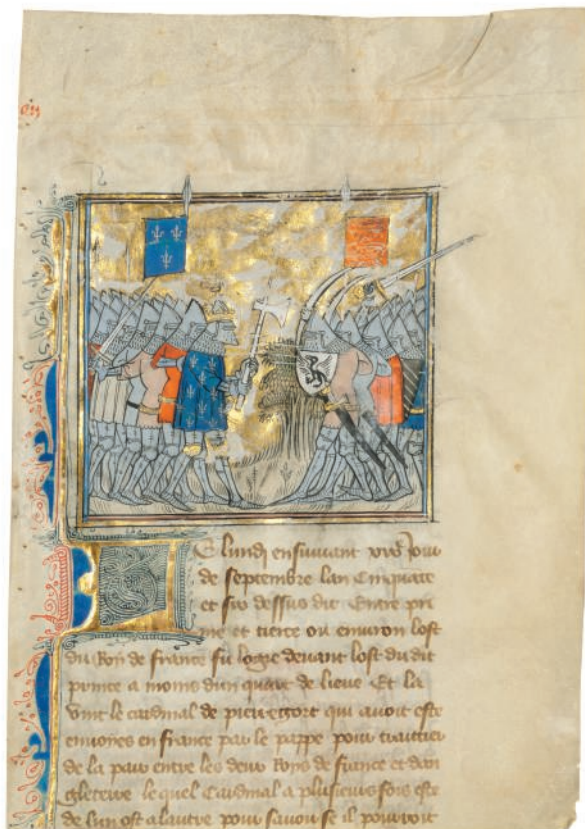 Le lundi ensuivant xixe jour
de septembre lan Cinquante
et six dessus dit Entre pri
me et tierce ou environ lost
du Roy de france fu logie devant lost dudit
prince a moins dun quart de lieue Et la
vint le cardinal de pierregort qui avoit este
envoies en france par le pappe pour traittier
de la paix entre les deux Roys de france et dan
gleterre le quel Cardinal a plusieurs fois este
de lun ost a lautre pour savoir se il pourroit